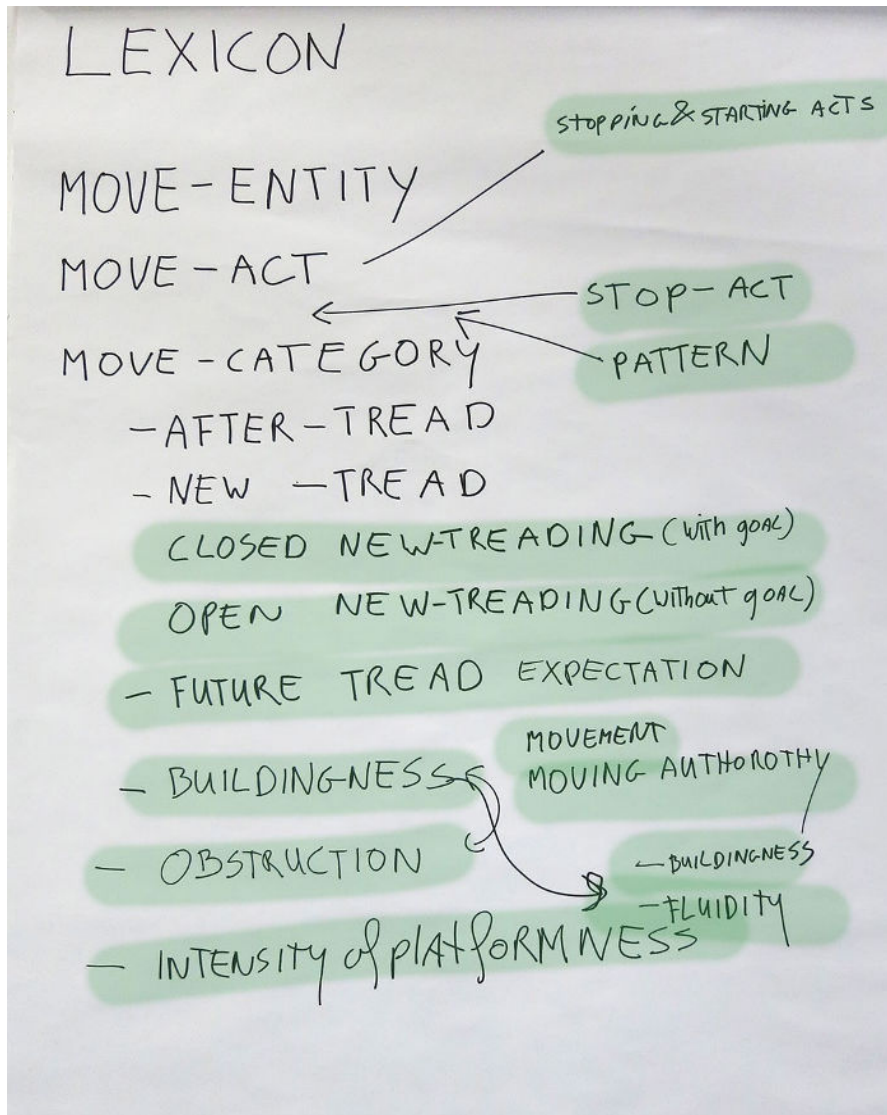 LEXICON
STOPPING & STARTING ACTS
MOVE-ENTITY
MOVE-ACT
STOP-ACT
PATTERN
MOVE-CATEGORY
-AFTER-TREAD
- NEW -TREAD
CLOSED NEW-TREADING (with goal)
OPEN NEW-TREADING (without goal)
- FUTURE TREAD EXPECTATION
MOVEMENT
MOVING AUTHOROTHY
- BUILDINGNESS
- OBSTRUCTION
- BUILDINGNESS
- FLUIDITY
- INTENSITY of plATfORMNESS